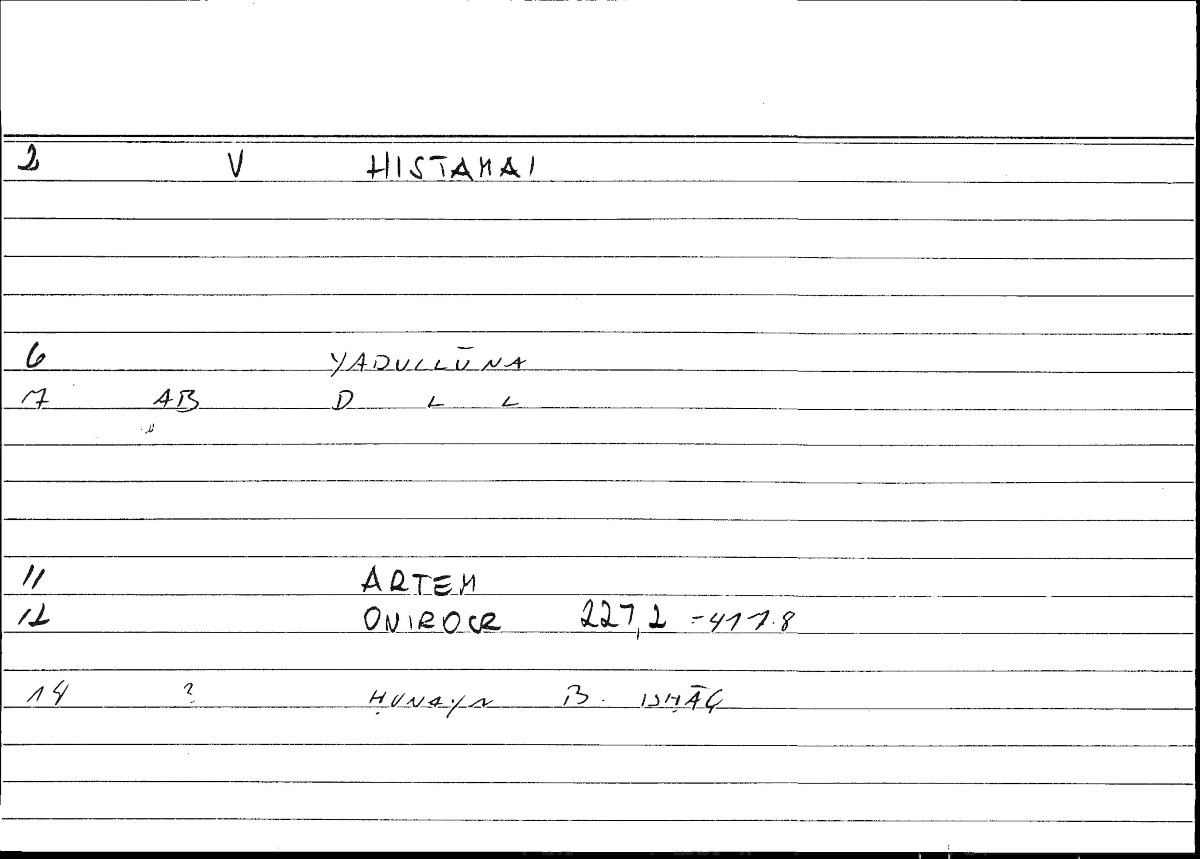 2 V HISTAMAI
6 YADULLŪNA
7 AB D L L
11 ARTEM
12 ONIROCR 227,2 = 411.8
14 ? ḤUNAYN B. ISḤĀQ